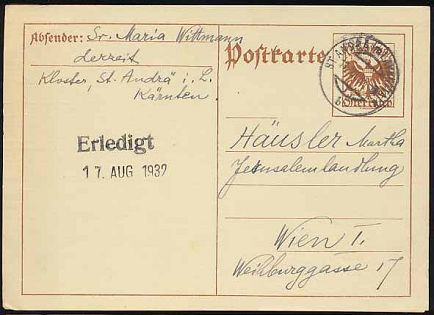 Absender: Sr. Maria Wittmann
derzeit
Kloster, St. Andrä i. L.
Kärnten.
Postkarte
ST. ANDRÄ
Österreich
Erledigt
17. AUG 1932
Häusler Martha
Jerusalemlandlung
Wien I.
Weihburggasse 17